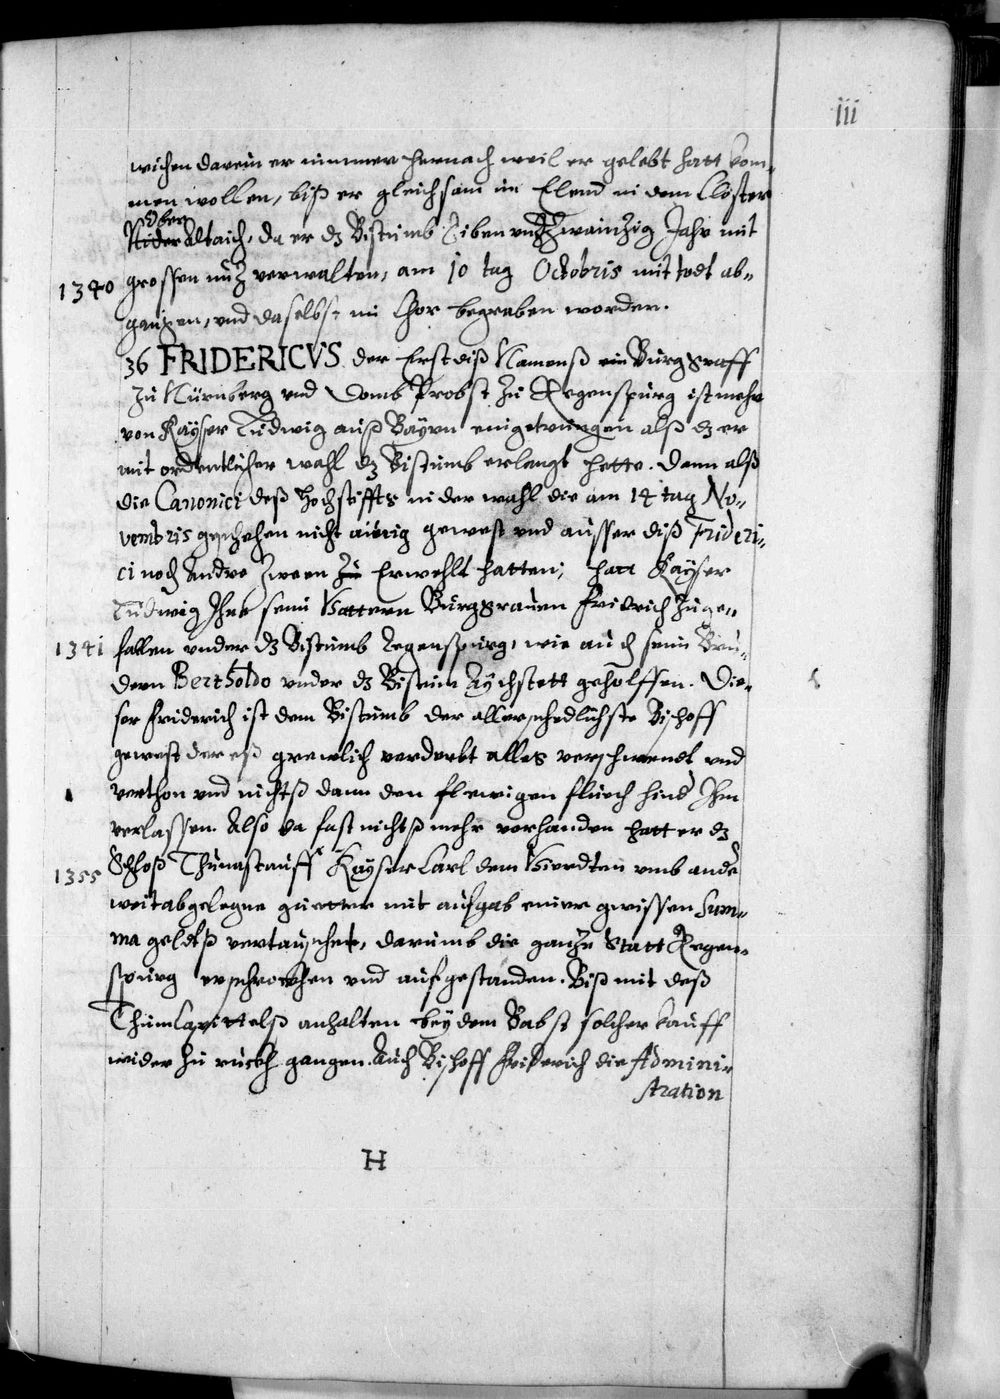 iii
wichen darein er nimmer hernach weil er gelebt hatt kom-
men wollen, biß er gleichsam im Elend in dem Closter
Ober
Nider Altaich, da er dz Bistumb Siben und Zwainzig Jahr mit
1340 grossen nuz verwalten, am 10 tag Octobris mit todt ab-
gangen, und daselbst im Chor begraben worden.
36 FRIDERICVS der Erst diß Namenß ein Burggraff
zu Nürnberg und Domb Probst zu Regenspurg ist mehr
von Kayser Ludwig auß Bayrn eingetrungen alß dz er
mit ordentlicher wahl dz Bistumb erlangt hette. Dann alß
die Canonici deß Hochstiffts in der wahl die am 14 tag No-
vembris geschehen nicht ainig gewest und ausser diß Frideri-
ci noch Andre zween zu Erwehlt hatten; hatt Kayser
Ludwig Ihne sein Vattern Burggrauen Fridrich zuge-
1341 fallen under dz Bistumb Regenspurg, wie auch seim Bru-
dern Bertholdo under dz Bistum Aychstett geholffen. Die-
ser Friderich ist dem Bistumb der allerschedlichste Bischoff
gewest der eß grewlich verderbt alles verschwendt und
verthon und nichtß dann den ewigen fluech hind Ihm
verlassen. Also da fast nichtß mehr verhanden hatt er dz
1355 Schloß Thunastauff Kayser Carl dem Vierdten umb ande
weitabgelegne guetter mit aufgab einer gwissen Sum-
ma geldtß vertauschet, darumb die ganze Statt Regen-
spurg erschrockhen und aufgestanden. Biß mit deß
Thum Capittelß anhalten bey dem Babst solcher kauff
wider zu ruckh gangen. Auch Bischoff Friderich die Admini-
stration
H